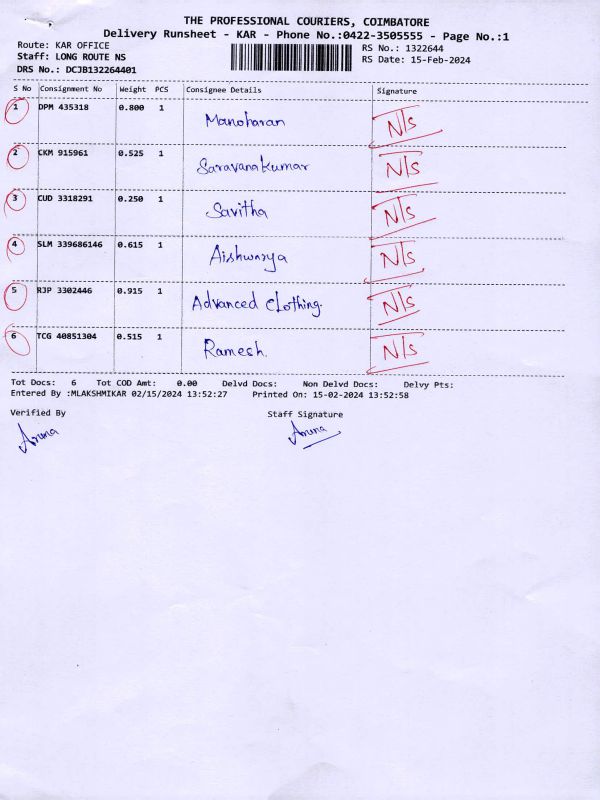 THE PROFESSIONAL COURIERS, COIMBATORE
Delivery Runsheet - KAR - Phone No.:0422-3505555 - Page No.:1
Route: KAR OFFICE RS No.: 1322644
Staff: LONG ROUTE NS RS Date: 15-Feb-2024
DRS No.: DCJB132264401
S No Consignment No Weight PCS Consignee Details Signature
1 DPM 435318 0.800 1 Manoharan N/s
2 CKM 915961 0.525 1 Saravanakumar N/s
3 CUD 3318291 0.250 1 Savitha N/s
4 SLM 339686146 0.615 1 Aishwarya N/s
5 RJP 3302446 0.915 1 Advanced Clothing. N/s
6 TCG 40851304 0.515 1 Ramesh. N/s
Tot Docs: 6 Tot COD Amt: 0.00 Delvd Docs: Non Delvd Docs: Delvy Pts:
Entered By :MLAKSHMIKAR 02/15/2024 13:52:27 Printed On: 15-02-2024 13:52:58
Verified By Staff Signature
Aruna Aruna